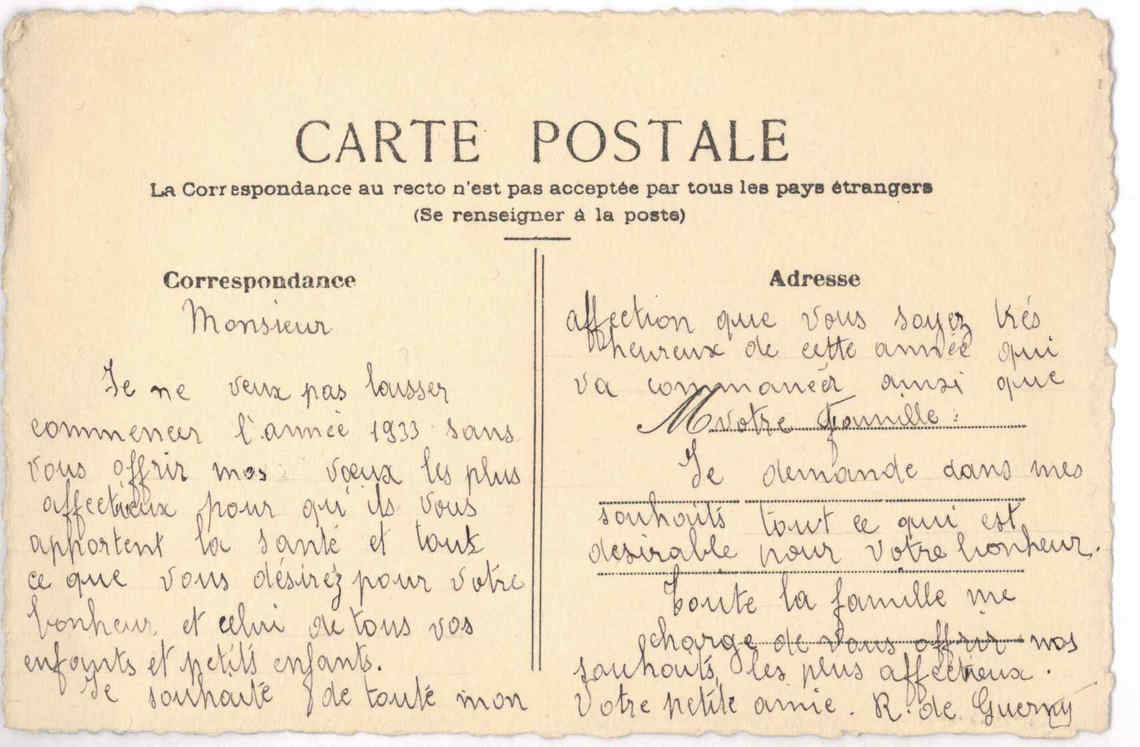 CARTE POSTALE
La Correspondance au recto n'est pas acceptée par tous les pays étrangers
(Se renseigner à la poste)
Correspondance
Monsieur
Je ne veux pas laisser
commencer l'année 1933 sans
vous offrir mes vœux les plus
affectieux pour qu'ils vous
apportent la santé et tout
ce que vous désirez pour votre
bonheur, et celui de tous vos
enfants et petits enfants.
Je souhaite de toute mon
Adresse
affection que vous soyez très
heureux de cette année qui
va commancér ainsi que
M votre famille :
Je demande dans mes
souhaits tout ce qui est
desirable pour votre bonheur.
Toute la famille me
charge de vous offrir nos
souhaits, les plus affectieux.
Votre petite amie. R. de Guerny